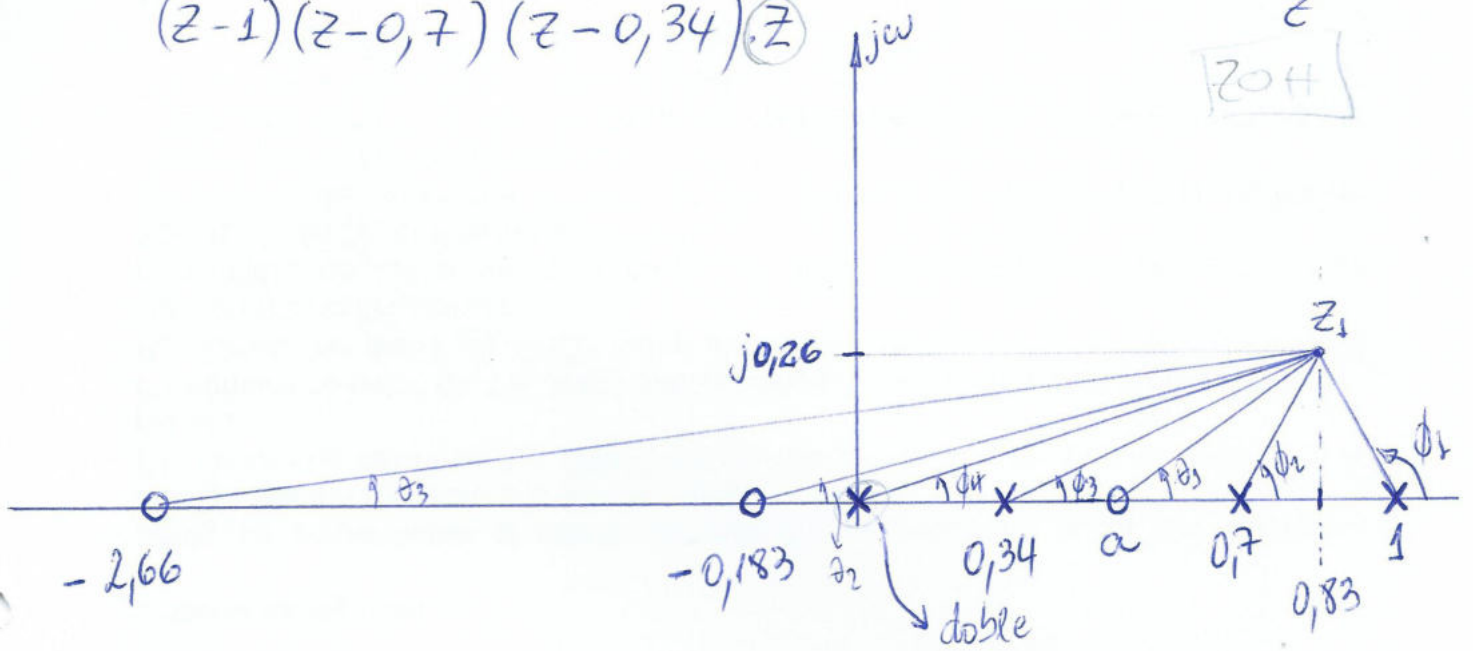 (z-1)(z-0,7)(z-0,34).z
jω
ZOH
z₁
j0,26
θ₃
ϕ₄
ϕ₃
θ₁
ϕ₂
ϕ₁
-2,66
-0,183
θ₂
0,34
a
0,7
1
0,83
doble